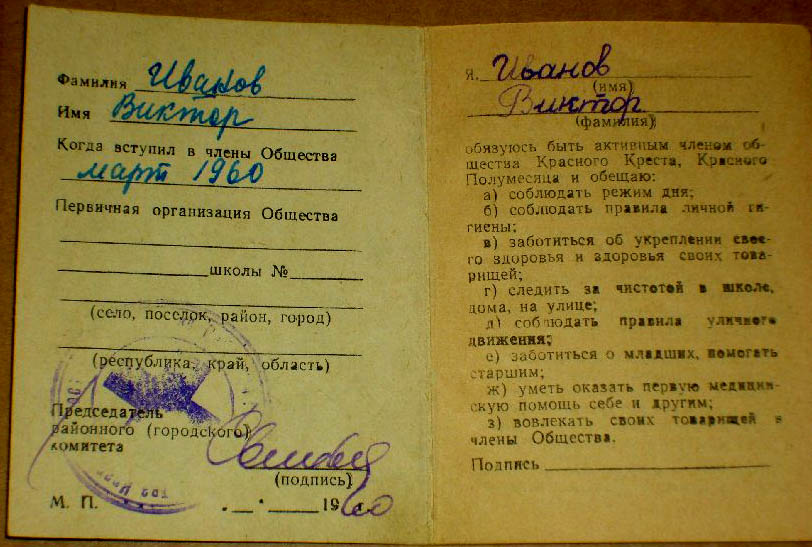 Фамилия Иванов
Имя Виктор
Когда вступил в члены Общества
март 1960
Первичная организация Общества
школы №
(село, поселок, район, город)
(республика, край, область)
Председатель
районного (городского)
комитета
(подпись)
М. П. . . 1960
Я, Иванов
(имя)
Виктор
(фамилия)
обязуюсь быть активным членом об-
щества Красного Креста, Красного
Полумесяца и обещаю:
а) соблюдать режим дня;
б) соблюдать правила личной ги-
гиены;
в) заботиться об укреплении свое-
го здоровья и здоровья своих това-
рищей;
г) следить за чистотой в школе,
дома, на улице;
д) соблюдать правила уличного
движения;
е) заботиться о младших, помогать
старшим;
ж) уметь оказать первую медицин-
скую помощь себе и другим;
з) вовлекать своих товарищей в
члены Общества.
Подпись